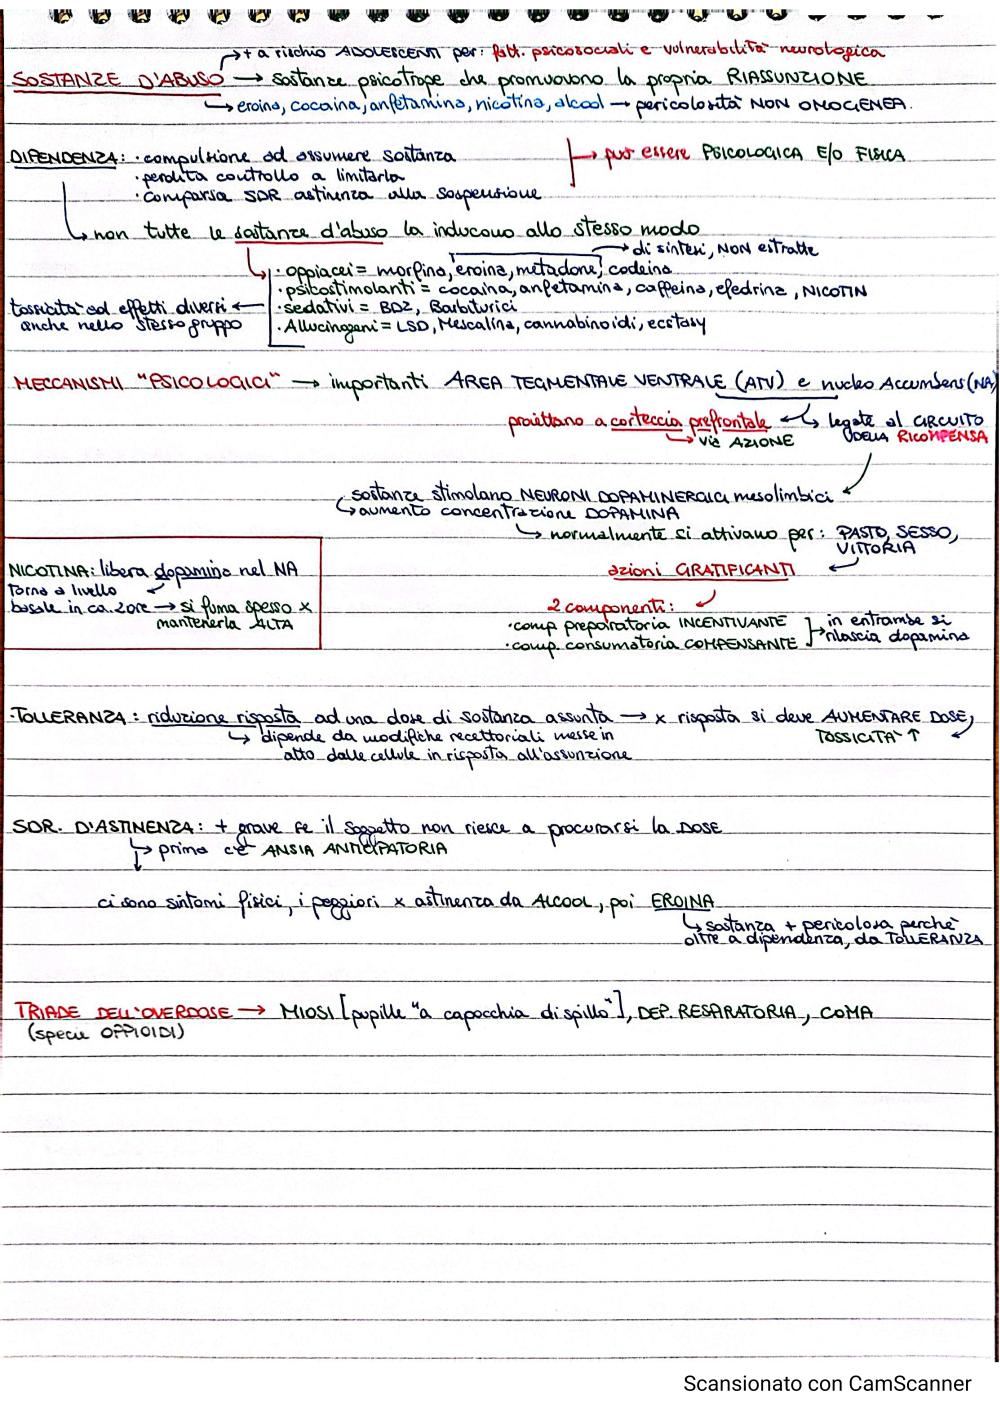 → + a rischio ADOLESCENTI per: fatt. psicosociali e vulnerabilità neurologica
SOSTANZE D'ABUSO → sostanze psicotrope che promuovono la propria RIASSUNZIONE
↳ eroina, cocaina, anfetamina, nicotina, alcool → pericolosità NON OMOGENEA.
DIPENDENZA: · compulsione ad assumere sostanza
→ può essere PSICOLOGICA E/O FISICA
· perdita controllo a limitarla
· comparsa SDR astinenza alla sospensione
↳ non tutte le sostanze d'abuso la inducono allo stesso modo
→ di sintesi, NON estratte
· oppiacei = morfina, eroina, metadone, codeina
· psicostimolanti = cocaina, anfetamina, caffeina, efedrina, NICOTIN
tossicità ed effetti diversi ← · sedativi = BDZ, Barbiturici
anche nello stesso gruppo · Allucinogeni = LSD, Mescalina, cannabinoidi, ecstasy
MECCANISMI "PSICOLOGICI" → importanti AREA TEGMENTALE VENTRALE (ATV) e nucleo Accumbens (NA)
proiettano a corteccia prefrontale ↳ legate al CIRCUITO
↳ via AZIONE DELLA RICOMPENSA
sostanze stimolano NEURONI DOPAMINERGICI mesolimbici
↳ aumento concentrazione DOPAMINA
↳ normalmente si attivano per: PASTO, SESSO,
VITTORIA
NICOTINA: libera dopamina nel NA
azioni GRATIFICANTI
torna a livello
basale in ca. 2 ore → si fuma spesso x
mantenerla ALTA
2 componenti:
· comp preparatoria INCENTIVANTE
· comp. consumatoria COMPENSANTE
→ in entrambe si
rilascia dopamina
· TOLLERANZA: riduzione risposta ad una dose di sostanza assunta → x risposta si deve AUMENTARE DOSE,
↳ dipende da modifiche recettoriali messe in TOSSICITÀ ↑
atto dalle cellule in risposta all'assunzione
SDR. D'ASTINENZA: + grave se il soggetto non riesce a procurarsi la DOSE
↳ prima c'è ANSIA ANTICIPATORIA
ci sono sintomi fisici, i peggiori x astinenza da ALCOOL, poi EROINA
↳ sostanza + pericolosa perchè
oltre a dipendenza, da TOLLERANZA
TRIADE DELL'OVERDOSE → MIOSI [pupille "a capocchia di spillo"], DEP. RESPIRATORIA, COMA
(specie OPPIOIDI)
Scansionato con CamScanner